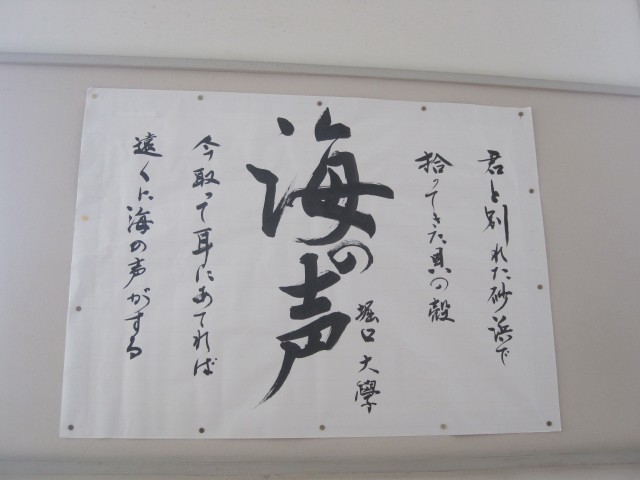 君と別れた砂浜で
拾ってきた貝の殻
海の声
堀口大學
今取って耳にあてれば
遠くに海の声がする